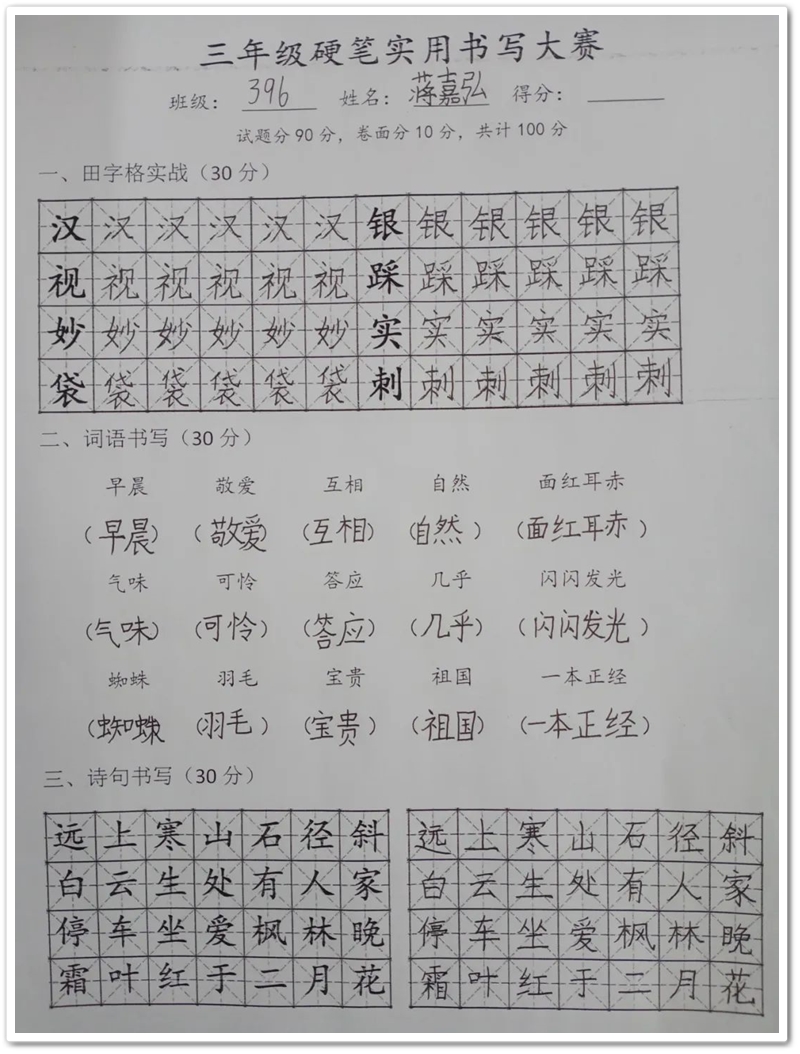 三年级硬笔实用书写大赛
班级： 396 姓名： 蒋嘉弘 得分：
试题分90分，卷面分10分，共计100分
一、田字格实战（30分）
汉汉汉汉汉汉银银银银银银
视视视视视视踩踩踩踩踩踩
妙妙妙妙妙妙实实实实实实
袋袋袋袋袋袋刺刺刺刺刺刺
二、词语书写（30分）
早晨 敬爱 互相 自然 面红耳赤
（早晨） （敬爱） （互相） （自然） （面红耳赤）
气味 可怜 答应 几乎 闪闪发光
（气味） （可怜） （答应） （几乎） （闪闪发光）
蜘蛛 羽毛 宝贵 祖国 一本正经
（蜘蛛） （羽毛） （宝贵） （祖国） （一本正经）
三、诗句书写（30分）
远上寒山石径斜 远上寒山石径斜
白云生处有人家 白云生处有人家
停车坐爱枫林晚 停车坐爱枫林晚
霜叶红于二月花 霜叶红于二月花